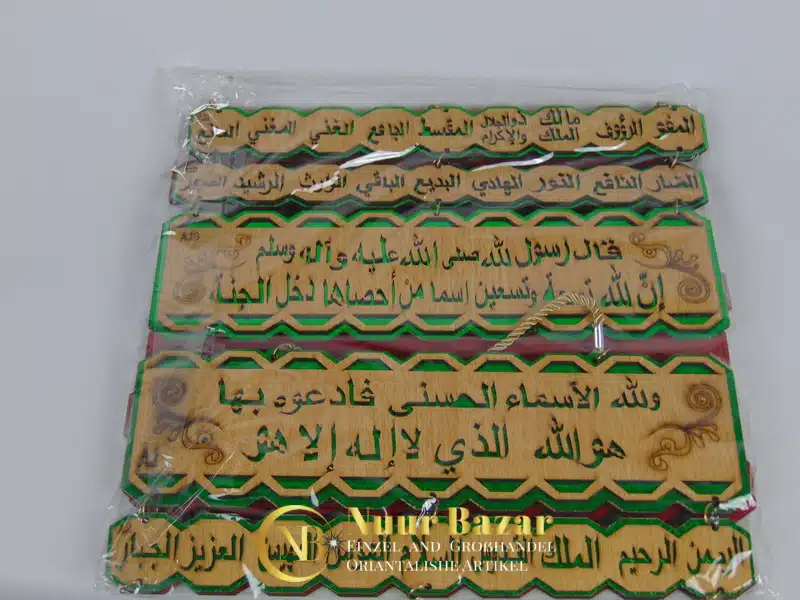 العفو الرؤوف مالك الملك ذوالجلال والإكرام المقسط الجامع الغني المغني
الضار النافع النور الهادي البديع الباقي الوارث الرشيد الصبور
AJS
قال رسول لله صلى الله عليه وآله وسلم
إن لله تسعة وتسعين اسما من أحصاها دخل الجنة
ولله الأسماء الحسنى فادعوه بها
هو الله الذي لا إله إلا هو
الرحمن الرحيم الملك القدوس السلام المؤمن المهيمن العزيز الجبار
Nuur Bazar
Einzel and Großhandel
Oriantalishe Artikel